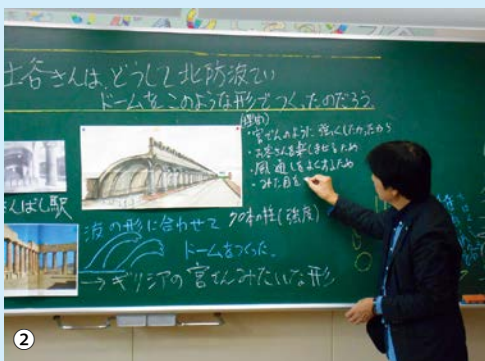 土谷さんは、どうして北防波てい
ドームをこのような形でつくったのだろう。
(理由)
・宮でんのように強くしたかったから
・お客さんを楽しませるため
・風通しをよくするため
・みた目を
さんばし駅
波の形に合わせて
70本の柱(強度)
ドームをつくった。
→ギリシアの宮でんみたいな形
②